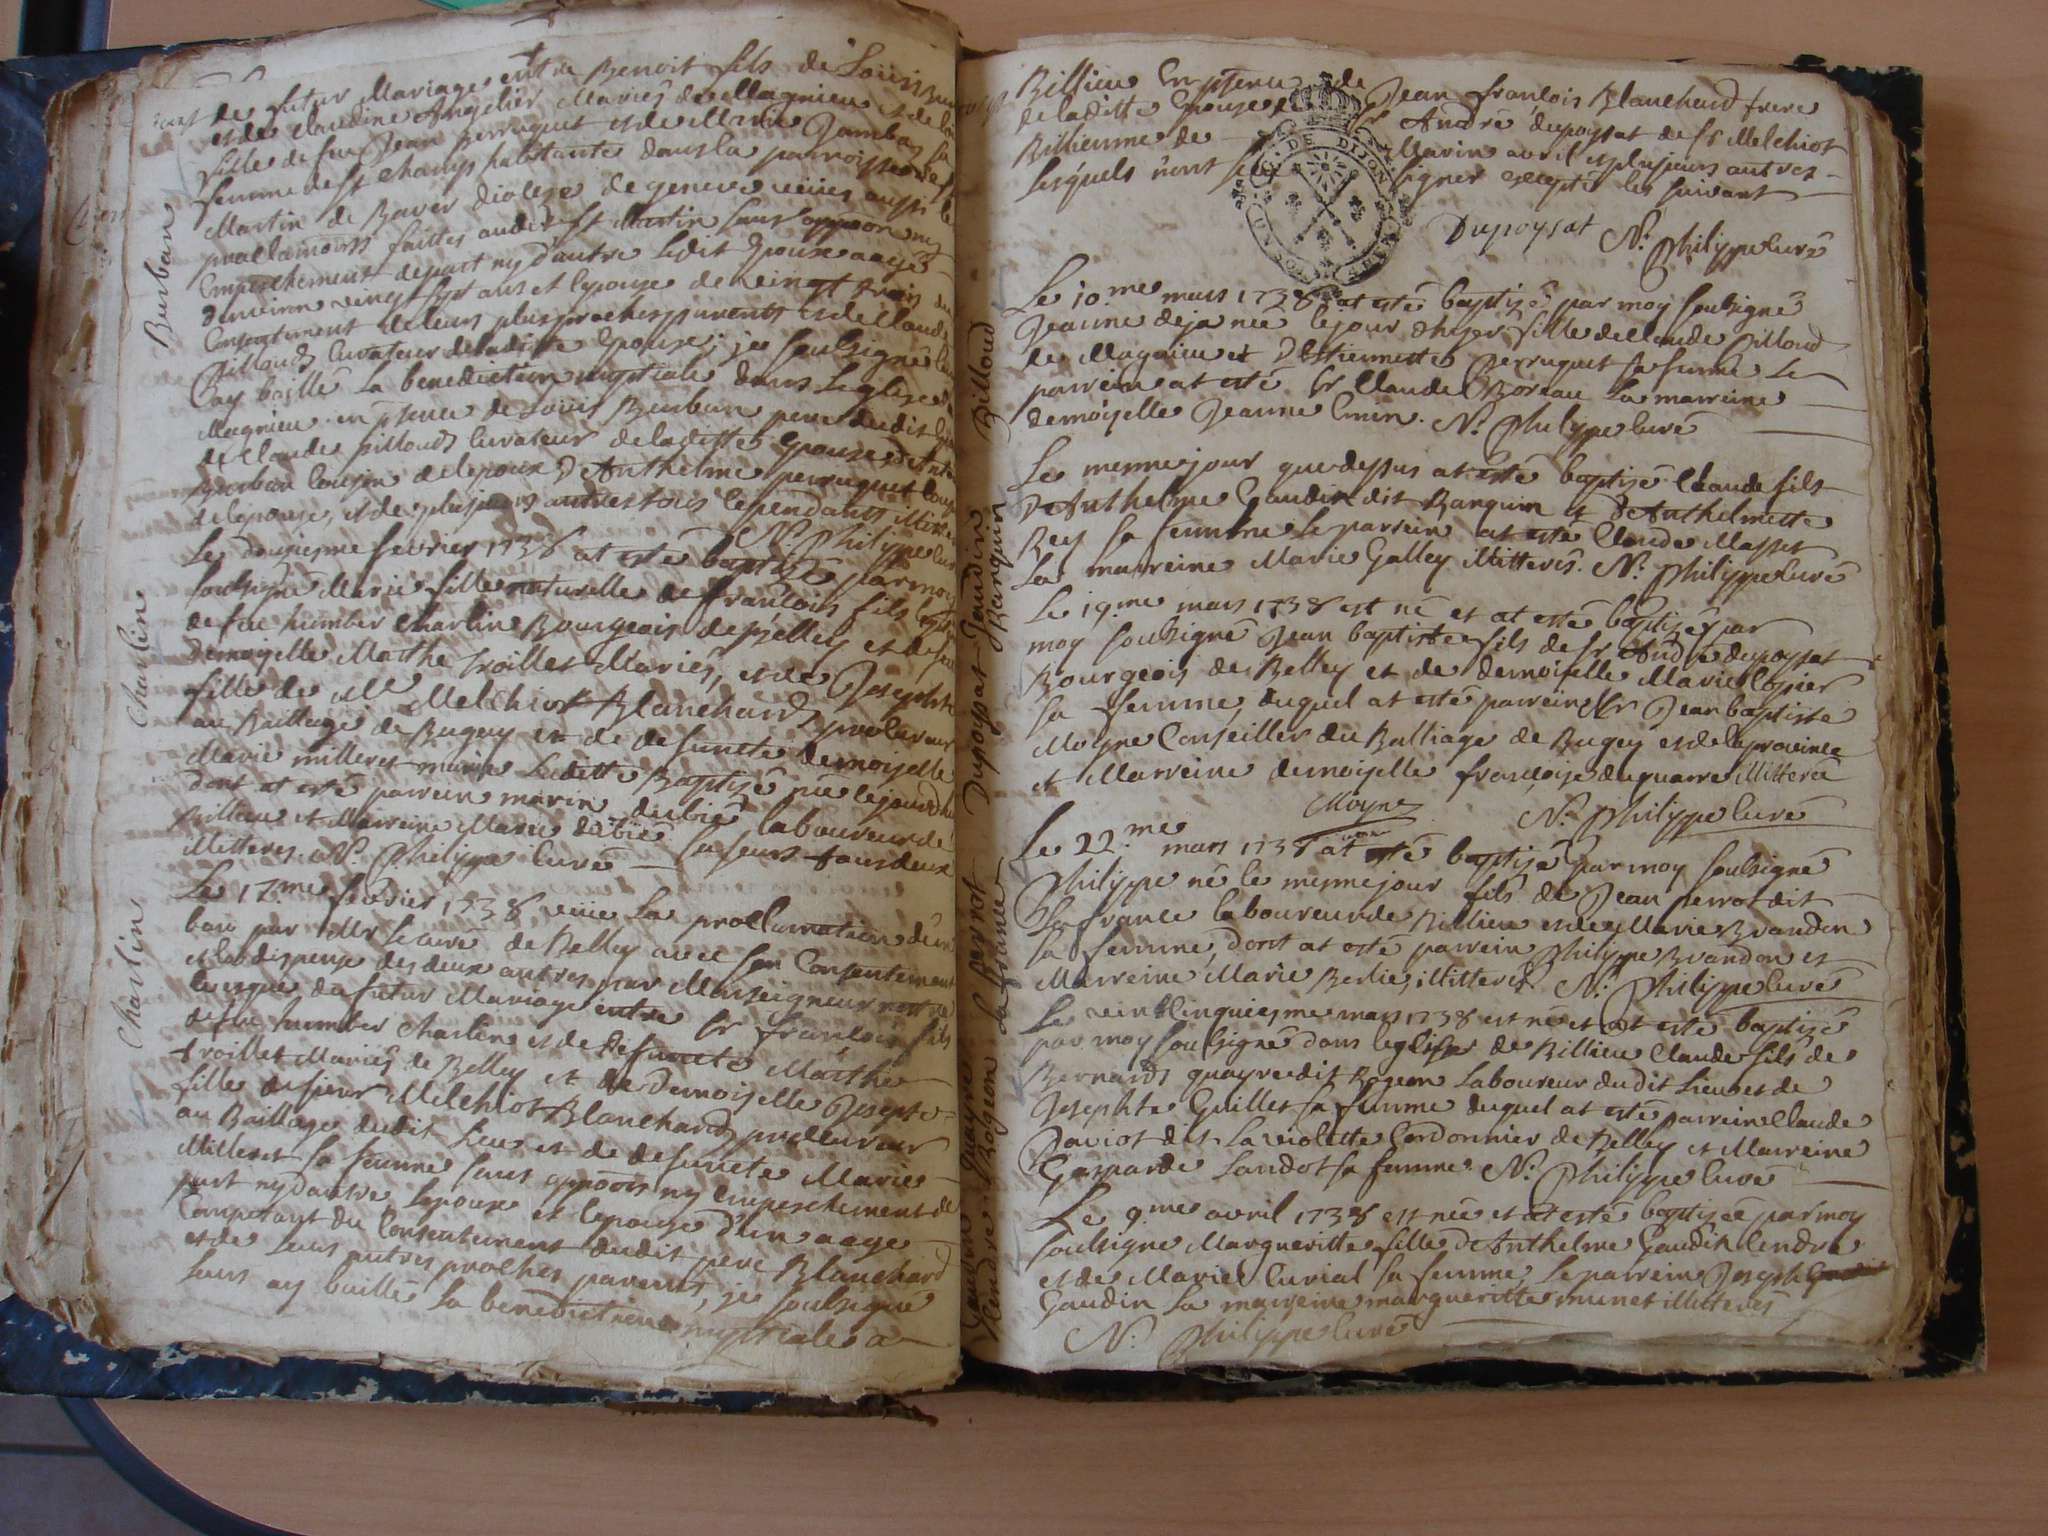 de futur Mariage entre Benoit fils de Loüis Burban
et de Claudine Angelier Mariés de Magnieu et de
fille de feu Jean perruquet et de Marie Jambaz sa
femme de St Champ habitante dans la parroisse de St
Martin de Baver diocese de geneve veües aussi le
proclamaons faittes audit St Martin sans oppoon ny
Empeschement depart ny d'autre Ledit Epoux aagé
denviron vingt sept ans et Lepouse de vingt trois du
Consentement de leurs plus proches parents et de Claude
pilloud Curateur de la ditte Epouse; je soubsigné
ay baillé la benediction nuptiale dans Leglise de
Magnieu en psence de Loüis Burban pere dudit
de Claude pilloud Curateur de laditte Epouse d'
Burban Cousin de lepoux D'Anthelme perruquet
de lepouse, et de plusieurs autres tous Cependants illiteres
N. Philippe Curé
Le douziesme fevrier 1738 at esté baptizé par moy
soubsigné Marie fille naturelle de francois fils
de feu humber Charlin Bourgeois de Belley et de feu
Demoyselle Marthe troillet Mariés, et de Josephte
fille de Me Melchiot Blanchard procureur
au Bailliage de Bugey et de defuncte demoyselle
Marie milleret mariés Laditte Baptisé née le jour
dont at esté parrein marin dubié laboureur de
Billieu et Marreine Marie dubié sa seur tous deux
illitteres. N. Philippe Curé
Le 17.me fevrier 1738 veüe la proclamation d'un
ban par Mr le curé de Belley avec son Consentement
et la dispense des deux autres par Monseigneur nostre
Evesque du futur Mariage entre Sr francois fils
de feu humber Charlin et de defuncte Marthe
troillet Mariés de Belley et de Demoiselle Josepte
fille de sieur Melchiot Blanchard procureur
au Bailliage dudit Lieu et de defuncte Marie
Milleret sa femme sans oppoon ny Empeschement de
part ny dautre Lepoux et Lepouse d'un aage
Competant du Consentement dudit pere Blanchard
et de leurs autres proches parents, je soubsigné
leurs ay baillé la benediction nuptiale a
Burban
Charlin
Charlin
Billieu En psence de Jean francois Blanchard frere
de laditte Epouse André dupoysat de Sr Melchiot
Billieme de Marin avril et plusieurs autres
lesquels n'ont sceu signer excepté les suivant
Dupoysat N. Philippe Curé
GEN. DE DIJON
Le 10.me mars 1738 at esté baptizé par moy soubsigné
Jeanne deja née lejour d'hyer fille de Claude pilloud
de Magnieu et D'Estiennette perruquet sa femme Le
parrein at esté Sr Claude Boreau La marreine
demoiselle Jeanne Cmin. N. Philippe Curé
Le mesme jour que dessus at esté baptizé Claude fils
d'Anthelme Gaudin dit Ranquin et D'Anthelmette
Rey sa femme Le parrein at esté Claude Masset
La marreine Marie Galley illitterés. N. Philippe Curé
Le 19.me mars 1738 est né et at esté baptizé par
moy soubsigné Jean baptiste fils de Sr André dupoysat
Bourgeois de Belley et de demoiselle Marie Cosier
sa femme, duquel at esté parrein Sr Jean baptiste
Moyne Conseiller du Balliage de Bugey et de la province
et Marreine demoiselle francoise duquarre illitteré
Moyne N. Philippe Curé
Le 22.me mars 1738 at esté baptizé par moy soubsigné
Philippe né le mesme jour fils de Jean perrot dit
La france laboureur de Billieu et de Marie Brandon
sa femme, dont at esté parrein Philippe Brandon et
Marreine Marie Berlie, illitterés. N. Philippe Curé
Le vein Cinquiesme mars 1738 est né et at esté baptizé
par moy soubsigné dans leglise de Billieu Claude fils de
Bernard quayre dit Rogeon Laboureur dudit Lieu et de
Josephte Guillet sa femme duquel at esté parrein Claude
Daviot dit La violette Cordonnier de Belley et Marreine
Gasparde Landot sa femme N. Philippe Curé
Le 9.me avril 1738 est née et at esté baptizée par moy
soubsigné Margueritte fille d'Anthelme Gaudin Cendre
et de Marie Curial sa femme, Le parrein Joseph
Gaudin La marreine margueritte munet illitterés
N. Philippe Curé
Billoud
Gaudin
Ranquin
Dupoysat
perrot
la france
quayre
Rogeon
Gaudin
Cendre